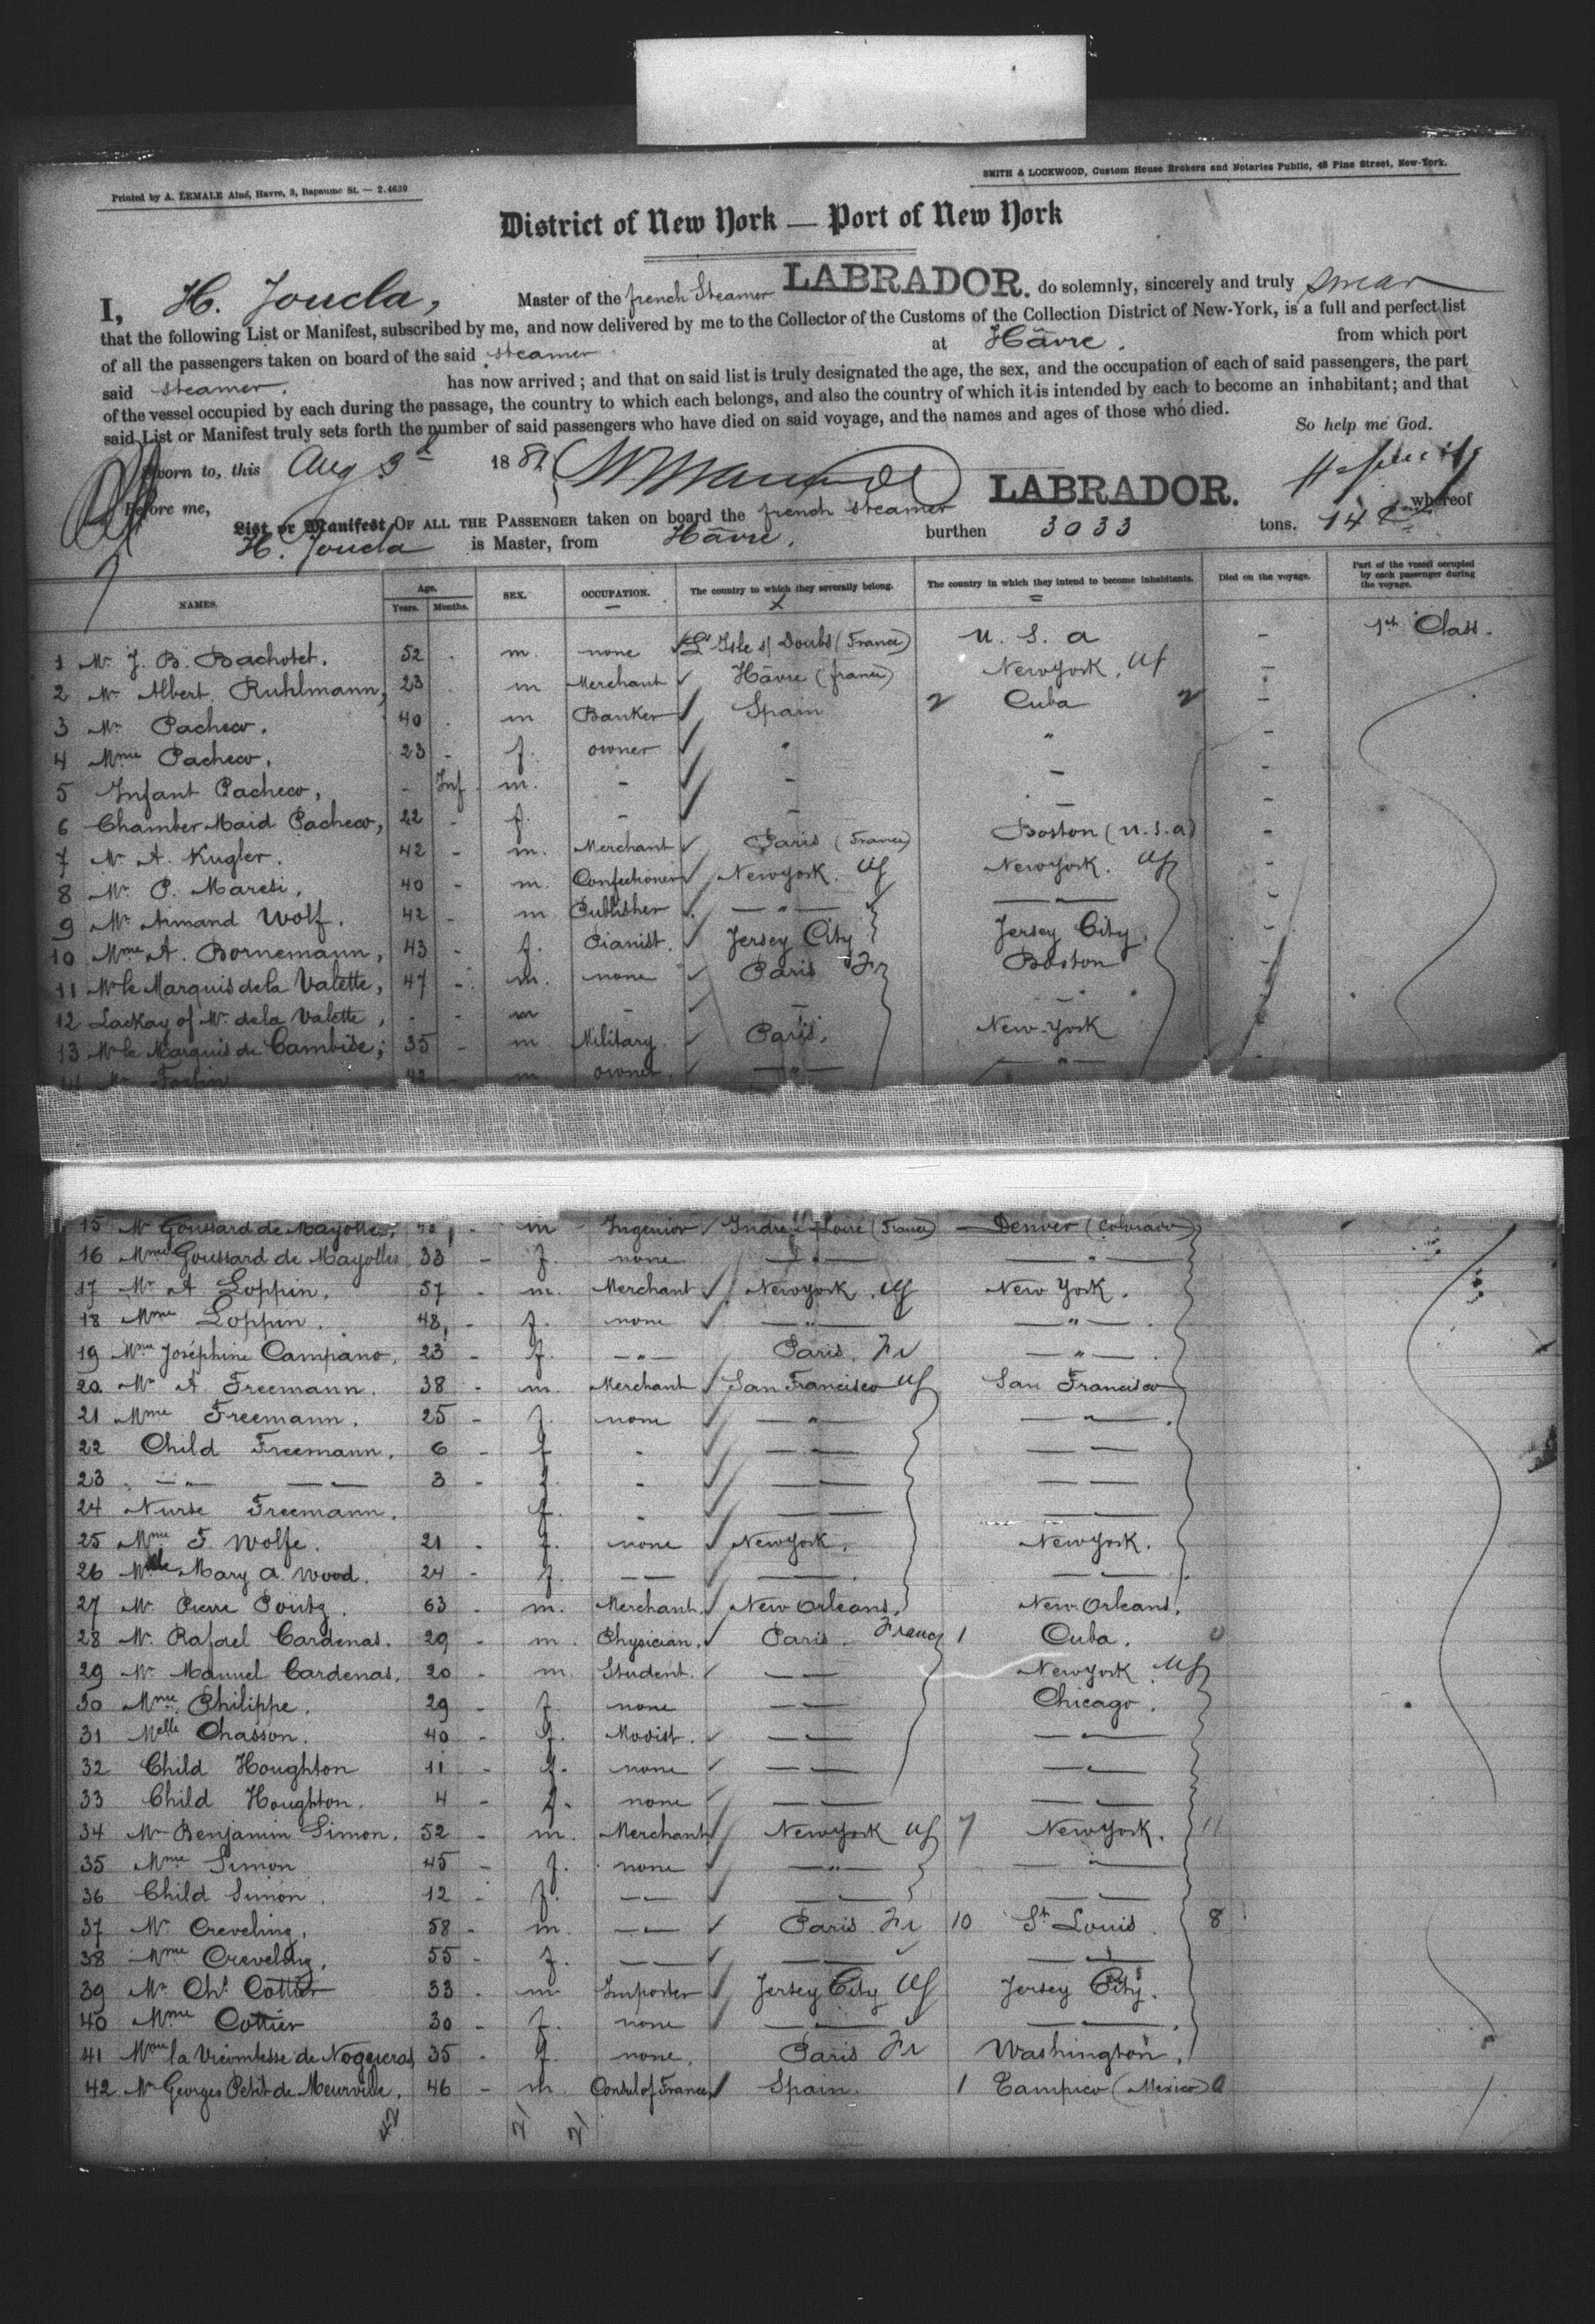 Printed by A. LEMALE Ainé, Havre, 3, Bapaume St. — 2.4639
SMITH & LOCKWOOD, Custom House Brokers and Notaries Public, 48 Pine Street, New-York.
District of New York — Port of New York
I, H. Joucla, Master of the french Steamer LABRADOR. do solemnly, sincerely and truly swear
that the following List or Manifest, subscribed by me, and now delivered by me to the Collector of the Customs of the Collection District of New-York, is a full and perfect list
of all the passengers taken on board of the said steamer at Hâvre. from which port
said steamer. has now arrived; and that on said list is truly designated the age, the sex, and the occupation of each of said passengers, the part
of the vessel occupied by each during the passage, the country to which each belongs, and also the country of which it is intended by each to become an inhabitant; and that
said List or Manifest truly sets forth the number of said passengers who have died on said voyage, and the names and ages of those who died.
So help me God.
Sworn to, this Aug 3d 188
Before me,
List or Manifest OF ALL THE PASSENGER taken on board the french steamer LABRADOR. whereof
H. Joucla is Master, from Hâvre. burthen 3033 tons.
NAMES. Age. Years. Months. SEX. OCCUPATION. The country to which they severally belong. The country in which they intend to become inhabitants. Died on the voyage. Part of the vessel occupied by each passenger during the voyage.
1 Mr J. B. Bachotet. 52 m. none Isle s/ Doubs (France) U. S. a - 1st Class.
2 Mr Albert Ruhlmann, 23 m Merchant Hâvre (france) New York. US -
3 Mr Pacheco. 40 m Banker Spain 2 Cuba 2 -
4 Mme Pacheco, 23 - f. owner " " -
5 Infant Pacheco, - Inf m. - - - -
6 Chamber Maid Pacheco, 22 - f. - - - -
7 Mr A. Kugler. 42 - m. Merchant Paris (France) Boston (U.S.a) -
8 Mr P. Maresi, 40 - m. Confectioner New York. US New York. US -
9 Mr Armand Wolf. 42 - m Publisher — " — — " — -
10 Mme A. Bornemann, 43 - f. Pianist. Jersey City Jersey City. -
11 Mr le Marquis de la Valette, 47 - m. none Paris Fr Boston -
12 Lackay of Mr. de la Valette, - - m - - " -
13 Mr le Marquis de Cambise; 35 - m Military. Paris. New-York -
14 Mr 42 m owner. — " — — " —
15 Mr Goussard de Mayolles, - m Ingenior Indre et Loire (France) Denver (Colorado)
16 Mme Goussard de Mayolles 33 - f. none — " — — " —
17 Mr A Loppin. 57 - m. Merchant New York. US New York.
18 Mme Loppin. 48, - f. none — " — — " —
19 Mme Joséphine Campano. 23 - f. — " — Paris. Fr — " —
20 Mr A Freemann. 38 - m. Merchant San Francisco US San Francisco
21 Mme Freemann. 25 - f. none — " — — " —
22 Child Freemann. 6 - f - — — — —
23 — " — — — 3 - f. - — — — —
24 Nurse Freemann. f. - — — — —
25 Mme F. Wolfe. 21 - f. none New York. New York.
26 Mlle Mary a. Wood. 24 - f. — — — — — —
27 Mr. Pierre Poutz. 63 - m. Merchant. New Orleans. New Orleans.
28 Mr. Rafael Cardenas. 29 - m. Physician. Paris. France 1 Cuba.
29 Mr Manuel Cardenas. 20 - m. Student. — — New York US
30 Mme Philippe. 29 - f. none — — Chicago.
31 Melle Chasson. 40 - f. Modist. — — — —
32 Child Houghton 11 - f. none — — — —
33 Child Houghton. 4 - f. none — — — —
34 Mr Benjamin Simon. 52 - m. Merchant New York US 7 New York. 11
35 Mme Simon 45 - f. none — " — — " —
36 Child Simon. 12 - f. — — — — — —
37 Mr Creveling. 58 - m. — — Paris Fr 10 St Louis. 8
38 Mme Creveling. 55 - f. — — — — — —
39 Mr Chs Cottier 33 . m Importer Jersey City US Jersey City.
40 Mme Cottier 30 - f. none — — — —
41 Mme la Vicomtesse de Nogueras 35 - f. none. Paris Fr Washington.
42 Mr Georges Petit de Meurville. 46 - m. Consul of France Spain. 1 Tampico (Mexico) 0
42 21 21